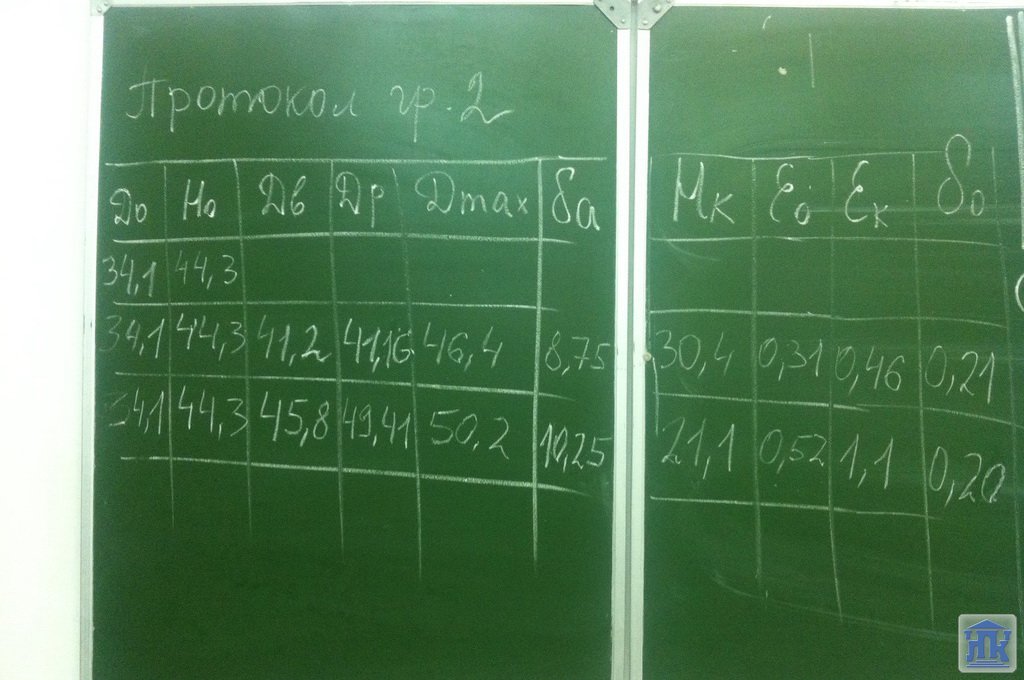 Протокол гр. 2
До Но Дв Др Дmax δа Мк Ɛо Ɛк δо
34,1 44,3
34,1 44,3 41,2 41,16 46,4 8,75 30,4 0,31 0,46 0,21
34,1 44,3 45,8 49,41 50,2 10,25 21,1 0,52 1,1 0,20
НПК